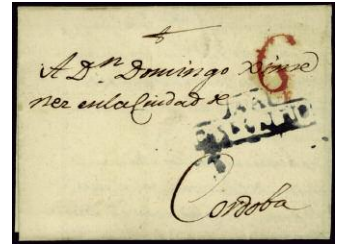 A Dn Domingo Xime
nez en la Ciudad de
6
Cordoba